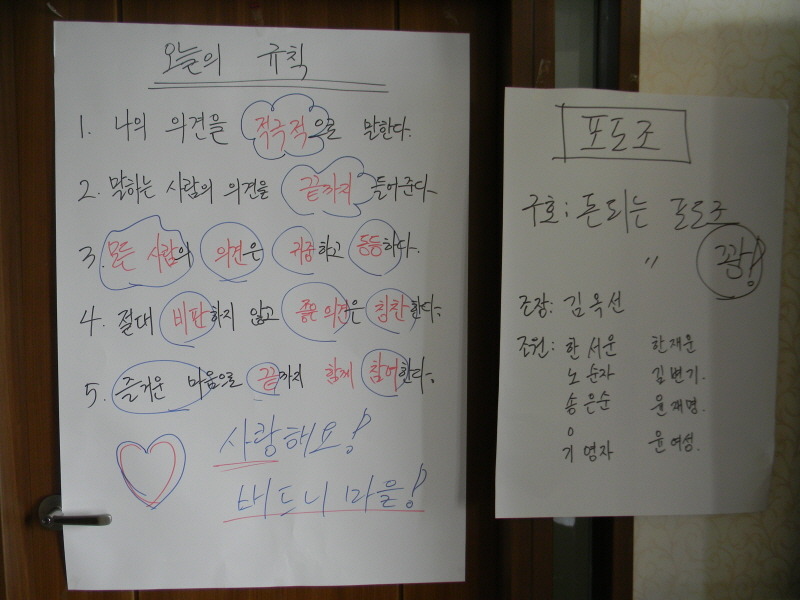 오늘의 규칙
1. 나의 의견을 적극적으로 말한다.
2. 말하는 사람의 의견을 끝까지 들어준다.
3. 모든 사람의 의견은 귀중하고 동등하다.
4. 절대 비판하지 않고 좋은 의견은 칭찬한다.
5. 즐거운 마음으로 끝까지 함께 참여한다.
사랑해요!
버드니 마을!
포도조
구호: 돈되는 포도조
〃 꽝!
조장: 김옥선
조원: 한서운 한재운
노순자 김변기.
송은순 윤재명.
기영자 윤여성.